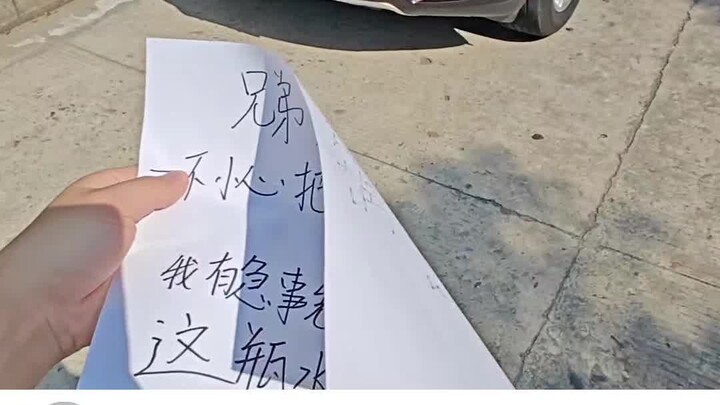 兄弟
一不小心把
我有急事
这瓶水